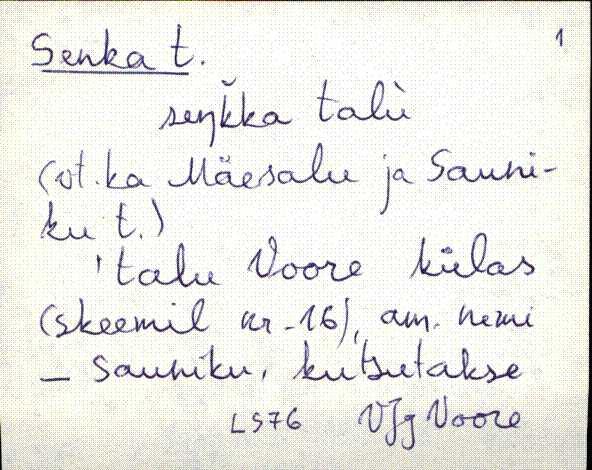 Senka t. 1
seŋk̆ka talù
(vt. ka Mäesalu ja Sauni-
ku t.)
'talu Voore külas
(skeemil nr. 16), am. nimi
– Sauniku, kutsutakse
LS76 VJg Voore